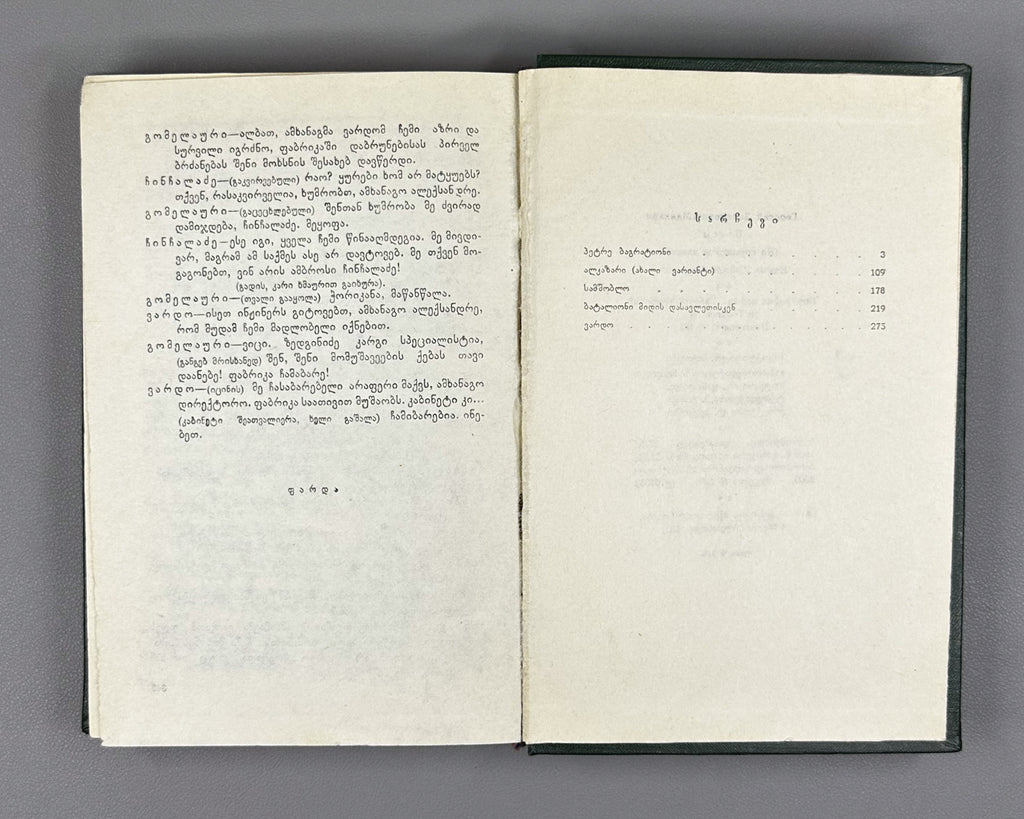 გომელაური—ალბათ, ამხანაგმა ვარდომ ჩემი აზრი და
სურვილი იგრძნო, ფაბრიკაში დაბრუნებისას პირველ
ბრძანებას შენი მოხსნის შესახებ დავწერდი.
ჩინჩალაძე—(გაკვირვებული) რაო? ყურები ხომ არ მატყუებს?
თქვენ, რასაკვირველია, ხუმრობთ, ამხანაგო ალექსანდრე.
გომელაური—(გაცეცხლებული) შენთან ხუმრობა მე ძვირად
დამიჯდება, ჩინჩალაძე. მეყოფა.
ჩინჩალაძე—ესე იგი, ყველა ჩემი წინააღმდეგია. მე მივდი-
ვარ, მაგრამ ამ საქმეს ასე არ დავტოვებ. მე თქვენ მო-
გაგონებთ, ვინ არის ამბროსი ჩინჩალაძე!
(გადის, კარი ხმაურით გაიხურა).
გომელაური—(თვალი გააყოლა) ჭორიკანა, მაწანწალა.
ვარდო—ისეთ ინჟინერს გიტოვებთ, ამხანაგო ალექსანდრე,
რომ მუდამ ჩემი მადლობელი იქნებით.
გომელაური—ვიცი. ზედგინიძე კარგი სპეციალისტია,
(განგებ მრისხანედ) შენ, შენი მომუშავეების ქებას თავი
დაანებე! ფაბრიკა ჩამაბარე!
ვარდო—(იცინის) მე ჩასაბარებელი არაფერი მაქვს, ამხანაგო
დირექტორო. ფაბრიკა საათივით მუშაობს. კაბინეტი კი...
(კაბინეტი შეათვალიერა, ხელი გაშალა) ჩამიბარებია. ინე-
ბეთ.
ფარდა
სარჩევი
პეტრე ბაგრატიონი . . . . . . . . . . 3
ალკაზარი (ახალი ვარიანტი) . . . . . . . . 109
სამშობლო . . . . . . . . . . 178
ბატალიონი მიდის დასავლეთისკენ . . . . . . . 219
ვარდო . . . . . . . . . . . 273